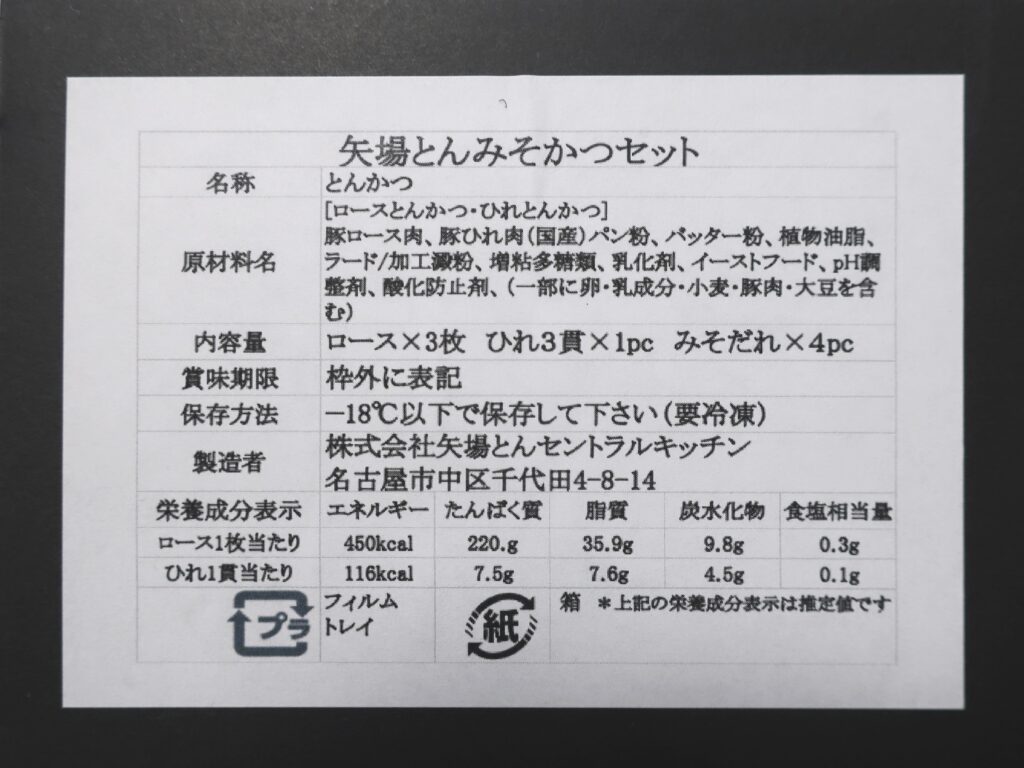 矢場とんみそかつセット
名称 とんかつ
原材料名 [ロースとんかつ・ひれとんかつ]
豚ロース肉、豚ひれ肉(国産)パン粉、バッター粉、植物油脂、
ラード/加工澱粉、増粘多糖類、乳化剤、イーストフード、pH調
整剤、酸化防止剤、(一部に卵・乳成分・小麦・豚肉・大豆を含
む)
内容量 ロース×3枚 ひれ3貫×1pc みそだれ×4pc
賞味期限 枠外に表記
保存方法 −18℃以下で保存して下さい(要冷凍)
製造者 株式会社矢場とんセントラルキッチン
名古屋市中区千代田4-8-14
栄養成分表示 エネルギー たんぱく質 脂質 炭水化物 食塩相当量
ロース1枚当たり 450kcal 220.g 35.9g 9.8g 0.3g
ひれ1貫当たり 116kcal 7.5g 7.6g 4.5g 0.1g
プラ フィルム
トレイ
紙 箱 *上記の栄養成分表示は推定値です